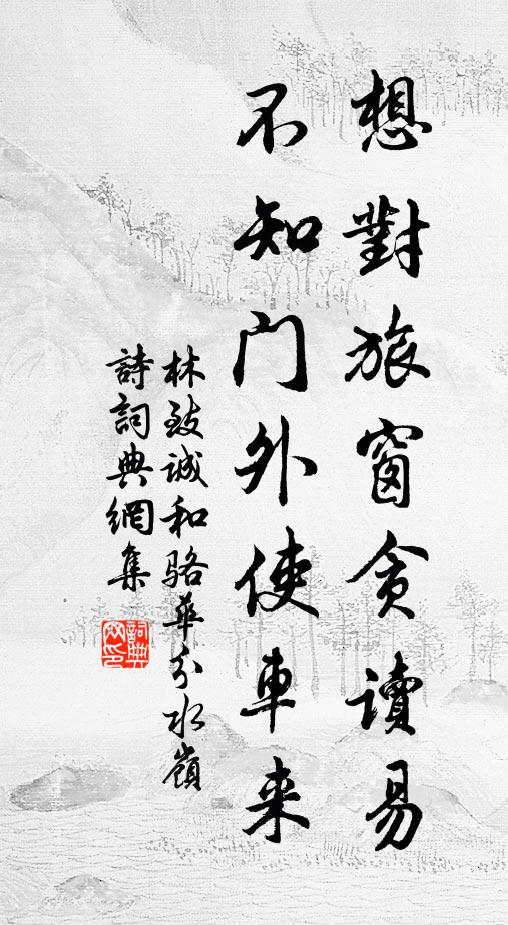 想對旅窗貪讀易
不知门外使車来
林致誠和骆華分水嶺
詩詞典網集
詞典
网印